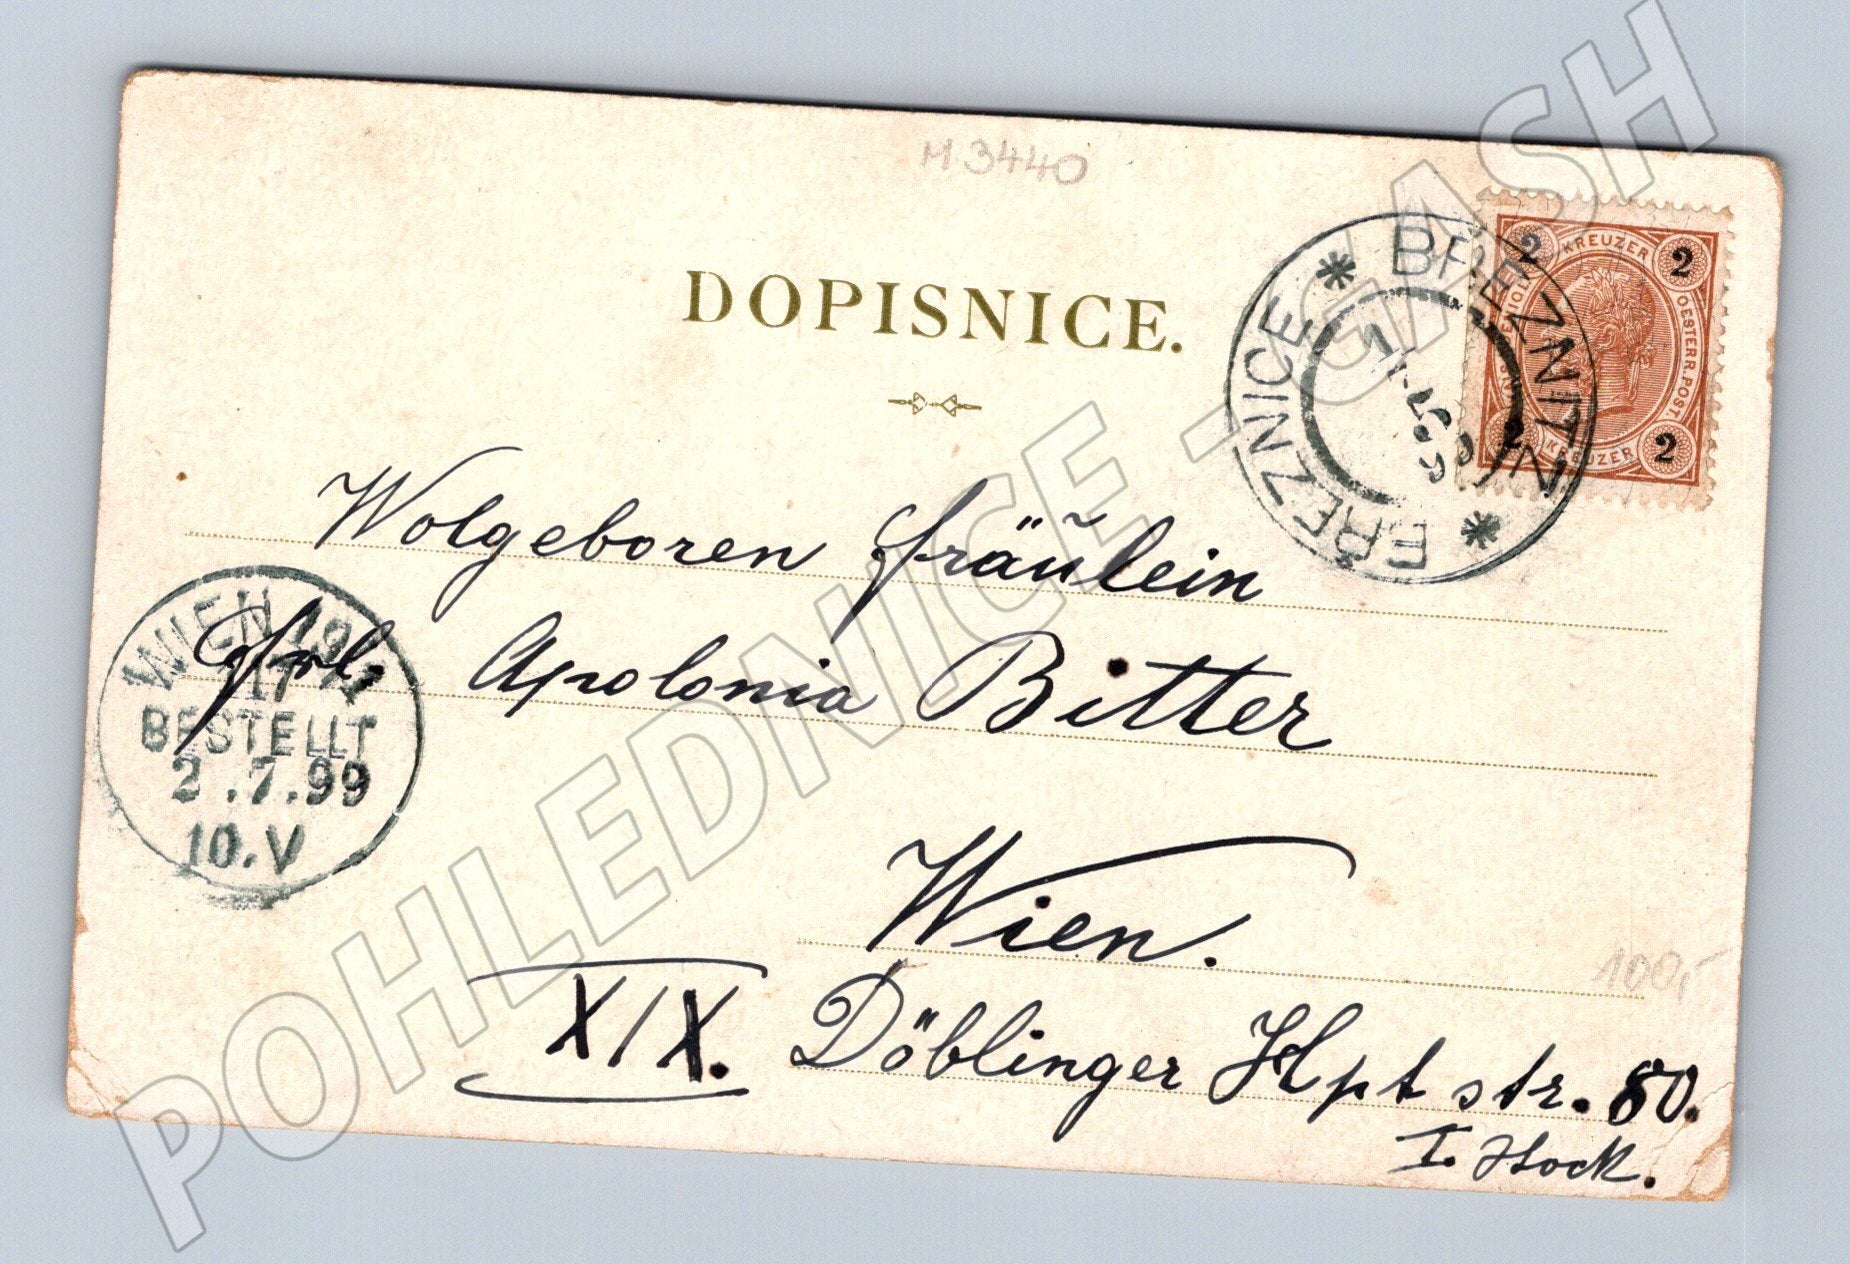 M 3440
DOPISNICE.
BŘEZNICE * BŘEZNITZ *
2 KREUZER 2
OESTERR. POST.
2 KREUZER 2
Wolgeboren Fräulein
Frl. Apolonia Bitter
WIEN 19/1
17
BESTELLT
2.7.99
10.V
Wien.
XIX. Döblinger Hpt str. 80.
I. Stock.
100,-
POHLEDNICE - GASH